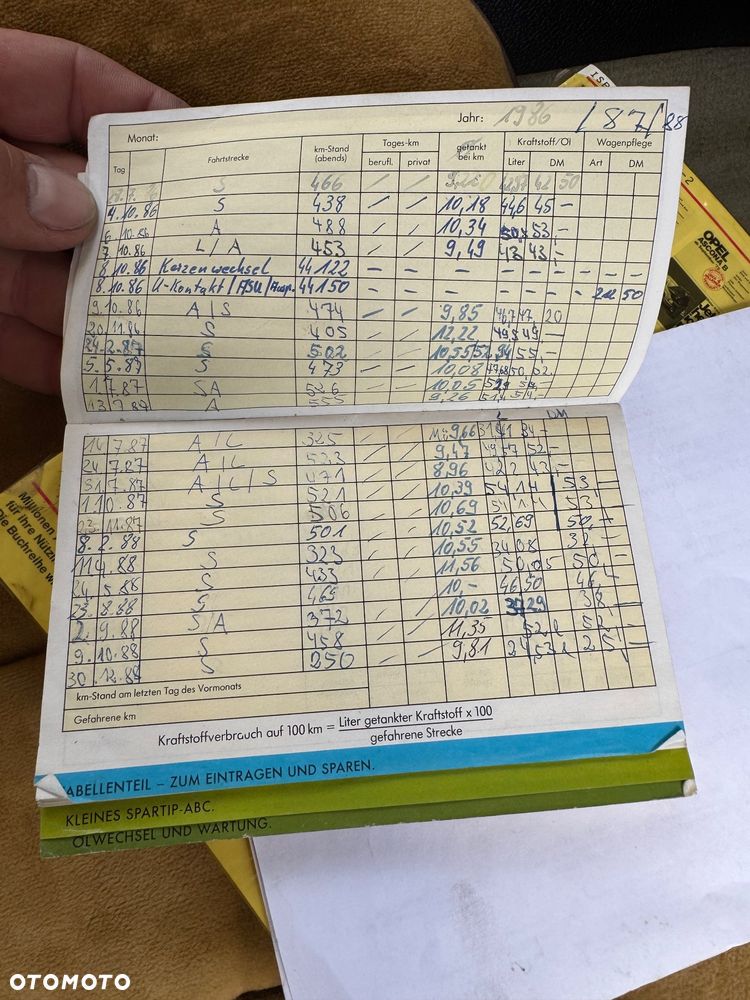 ISP
Jahr: 1986 /87/88
Monat:
Tag Fahrtstrecke km-Stand (abends) Tages-km berufl. privat getankt bei km Kraftstoff/Öl Liter DM Wagenpflege Art DM
S 466 42 50
4.10.86 S 438 / / 10,18 44,6 45 –
6.10.86 A 488 / / 10,34 53,–
7.10.86 L/A 453 / / 9,49 43 43,–
8.10.86 Kerzenwechsel 44122 – – – – – – –
8.10.86 U-Kontakt/ASU/ 44150 – – – – – 50
9.10.86 A/S 474 – – 9,85 46,7 47 20
20.11.86 S 405 / / 12,22 49,5 49 –
24.2.87 S 502 / / 10,55 52,94 55,–
5.5.87 S 473 / / 10,08 50,02
1.7.87 SA 526 / / 10,05
13.7.87 A 555 / / 9,26 51,4 51,–
L DM
14.7.87 A/L 325 / / 9,66 34 –
24.7.87 A/L 523 / / 9,47 52 –
31.7.87 A/L/S 471 / / 8,96 42 2 43,–
1.10.87 S 521 / / 10,39 54,14 53 –
23.11.87 S 506 / / 10,69 53 –
8.2.88 S 501 / / 10,52 52,69 50,–
11.4.88 S 323 / / 10,55 34,08 32 –
24.5.88 S 433 / / 11,56 50,05 50 –
23.8.88 S 465 / / 10,– 46,50
2.9.88 S/A 372 / / 10,02 37,29 38,–
9.10.88 S 458 / / 11,35 52 l 52,–
30.12.88 S 250 / / 9,81 24,53 l 25,–
km-Stand am letzten Tag des Vormonats
Gefahrene km
Kraftstoffverbrauch auf 100 km = Liter getankter Kraftstoff x 100
gefahrene Strecke
TABELLENTEIL – ZUM EINTRAGEN UND SPAREN.
KLEINES SPARTIP-ABC.
ÖLWECHSEL UND WARTUNG.
OPEL
ASCONA B
Millionen
für ihre Nützl
Die Buchreihe
OTOMOTO